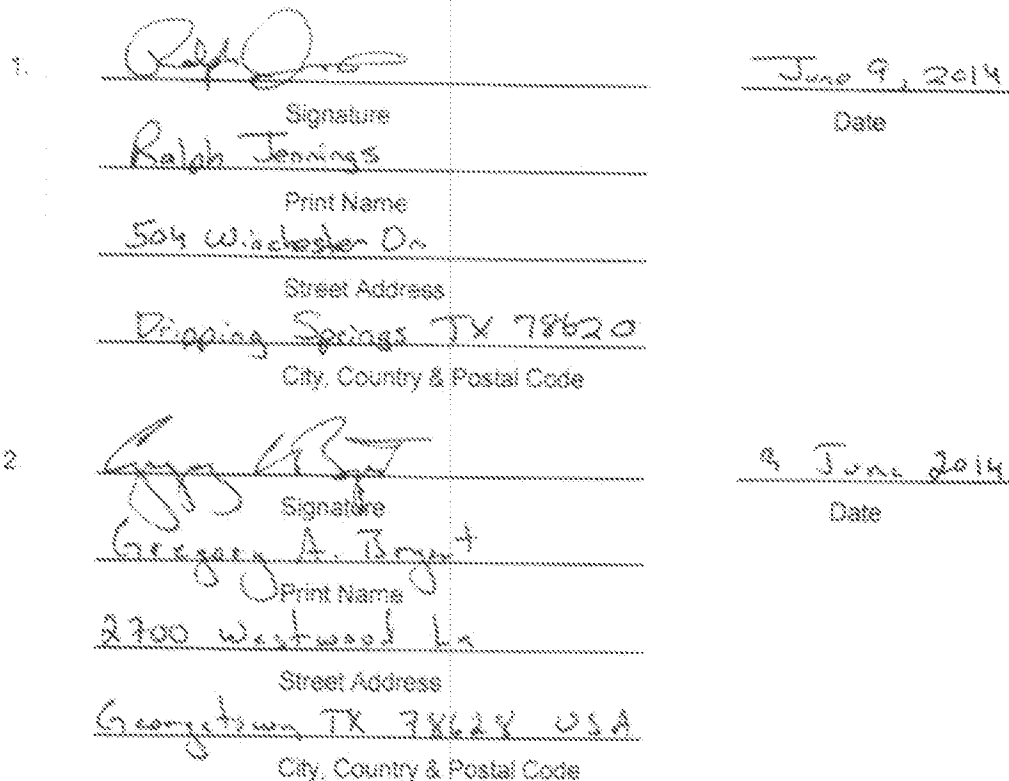 1. Ralph Jennings June 9, 2014
Signature Date
Ralph Jennings
Print Name
504 Winchester Dr
Street Address
Dripping Springs TX 78620
City, Country & Postal Code
2. Gregory A. Bryant 9 June 2014
Signature Date
Gregory A. Bryant
Print Name
2700 Westwood Ln
Street Address
Georgetown TX 78628 USA
City, Country & Postal Code